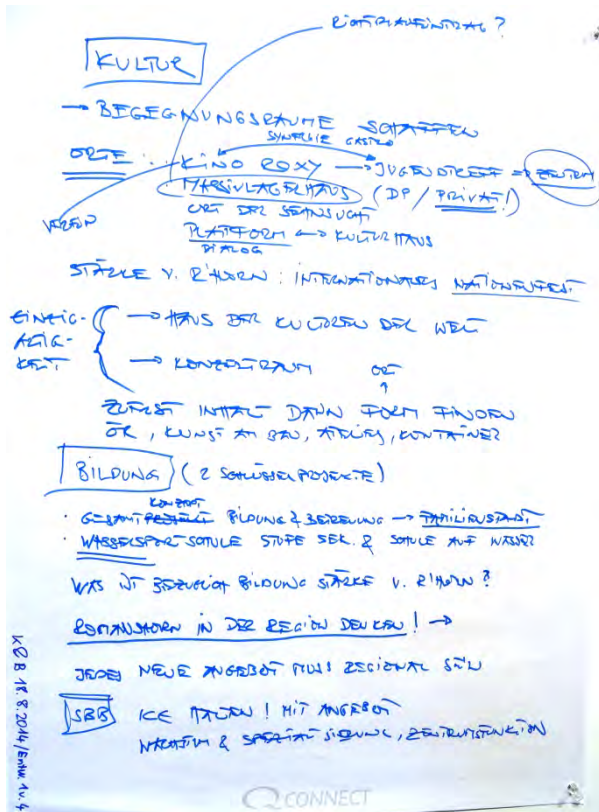 KULTUR
→ BEGEGNUNGSRÄUME SCHAFFEN
SYNERGIE GASTRO
ORTE : KINO ROXY → JUGENDTREFF = ZENTRUM
MASSIVLAGERHAUS (DP / PRIVAT!)
VEREIN
ORT DER SEHNSUCHT
PLATTFORM ↔ KULTURHAUS
DIALOG
STÄRKE V. R'HORN : INTERNATIONALES NATIONENFEST
EINZIG-
ARTIG-
KEIT
→ HAUS DER KULTUREN DER WELT
→ KONZERTRAUM
ORT
↑
ZUERST INHALT DANN FORM FINDEN
ÖR, KUNST AM BAU, ATELIERS, CONTAINER
BILDUNG (2 SCHLÜSSELPROJEKTE)
KONZEPT
· GESAMTPROJEKT BILDUNG & BETREUUNG → FAMILIENSTADT
· WASSERSPORTSCHULE STUFE SEK. & SCHULE AUF WASSER
WAS IST BEZÜGLICH BILDUNG STÄRKE V. R'HORN?
ROMANSHORN IN DER REGION DENKEN! →
JEDES NEUE ANGEBOT MUSS REGIONAL SEIN
SBB ICE HALTEN! MIT ANGEBOT
& SPEZIALISIERUNG, ZENTRUMSFUNKTION
KRB 18.8.2014 / Entw. 1v.4
CONNECT